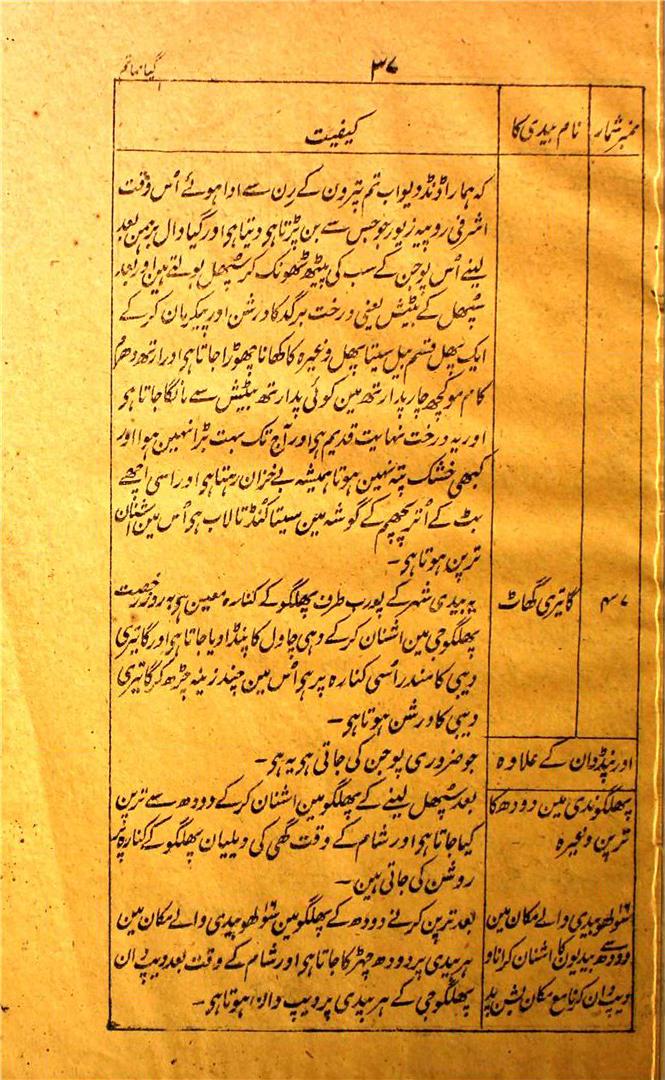 ۳۷
گیا مہاتم
نمبر شمار
نام بیدی کا
کیفیت
کہ ہمارا ڈنڈ دیو اب تم پترون کے رِن سے ادا ہوئے اُس وقت
اشرفی روپیہ زیور جو جس سے بن پڑتا ہی دیتا ہی اور گیا وال بزمن بعد
لینے اُس پوجن کے سب کی پیٹھ ٹھونک کر سُپھل بولتے ہین اور بعد
سُپھل کے بٹیش یعنی درخت برگد کا درشن اور پیکریان کر کے
ایک پھل قسم بیل سیتا پھل وغیرہ کا کھانا چھوڑا جاتا ہی اور ارتھ دھرم
کام موکچھ چار پدارتھ مین کوئی پدارتھ بٹیش سے مانگا جاتا ہی
اور یہ درخت نہایت قدیم ہی اور آج تک بہت بڑا نہین ہوا اور
کبھی خشک پتہ نہین ہوتا ہمیشہ بے خزان رہتا ہی اور اسی اچھے
بٹ کے اُتر پچھم کے گوشہ مین سیتا کنڈ تالاب ہی اُس مین اشنان
ترپن ہوتا ہی۔
۴۷
گایتری گھاٹ
یہ بیدی شہر کے پورب طرف پھلگو کے کنارہ معین ہی بروز رخصت
پھلگو جی مین اشنان کر کے دہی چاول کا پنڈا دیا جاتا ہی اور گایتری
دیبی کا مندر اُسی کنارہ پر ہی اُس مین چند زینہ چڑھ کر گایتری
دیبی کا درشن ہوتا ہی۔
اور پنڈ دان کے علاوہ
جو ضروری پوجن کی جاتی ہی یہ ہی۔
پھلگو ندی مین دودھ کا
ترپن وغیرہ
بعد سُپھل لینے کے پھلگو مین اشنان کر کے دودھ سے ترپن
کیا جاتا ہی اور شام کے وقت گھی کی دیلیان پھلگو کے کنارہ پر
روشن کی جاتی ہین۔
۱۶ سولھو بیدی والے مکان مین
دودھ سے بیدیون کا اشنان کرانا و
دیپ دان کرنا مع مکان بشن پد
بعد ترپن کرنے دودھ کے پھلگو مین ۱۶ سولھو بیدی والے مکان مین
ہر بیدی پر دودھ چھڑکا جاتا ہی اور شام کے وقت بعد دیپ دان
پھلگو جی کے ہر بیدی پر دیپ دان ہوتا ہی۔